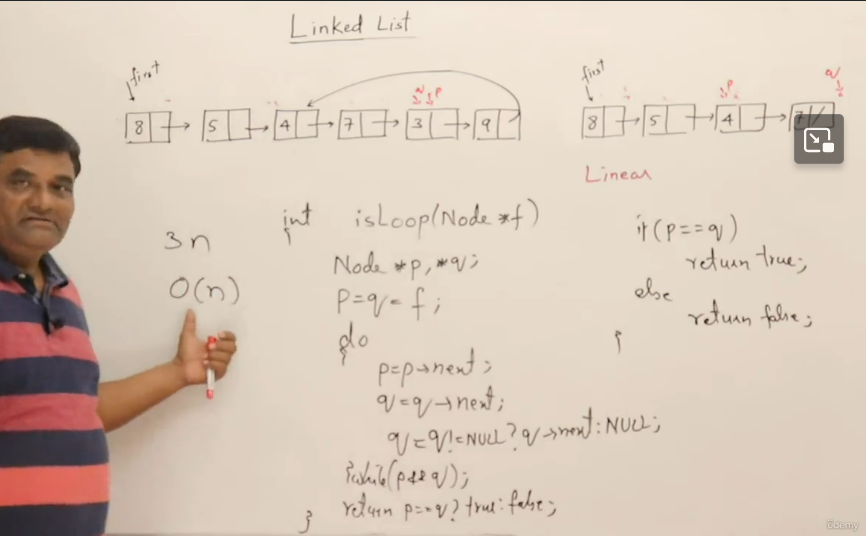 Linked List
first
8 5 4 7 3 9
q p
first
8 5 4 7
p
q
Linear
3n
O(n)
int isLoop(Node *f)
{
Node *p,*q;
p=q=f;
do
{
p=p→next;
q=q→next;
q=q!=NULL?q→next:NULL;
}while(p&&q);
return p==q?true:false;
}
if(p==q)
return true;
else
return false;
}
ûdemy